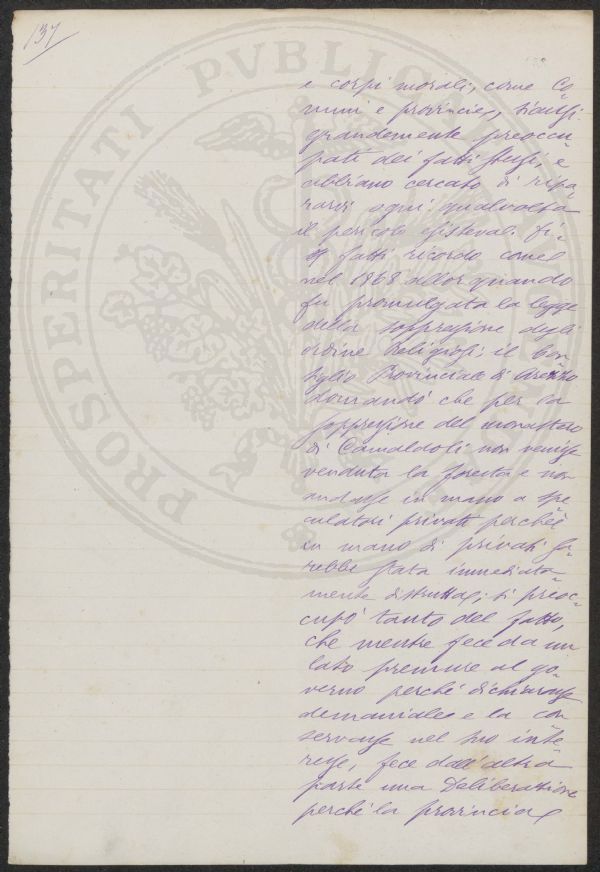 137
PROSPERITATI PVBLICAE
e corpi morali, come Co=
muni e provincie, siensi
grandemente preoccu=
pati dei fatti stessi, e
abbiano cercato di ripa=
rarsi ogni qualvolta
il pericolo esisteva. Di=
fatti ricordo come
nel 1868 allorquando
fu promulgata la legge
della soppressione degli
ordine Religiosi, il Con=
siglio Provinciale di Arezzo
domandò che per la
soppressione del monastero
di Camaldoli non venisse
venduta la foresta e non
andasse in mano a spe=
culatori privati perchè
in mano di privati sa=
rebbe stata immediata=
mente distrutta; si preoc=
cupò tanto del fatto,
che mentre fece da un
lato premure al go=
verno perchè dichiarasse
demaniale e la con
servasse nel suo inte=
resse, fece dall'altra
parte una Deliberazione
perchè la provincia